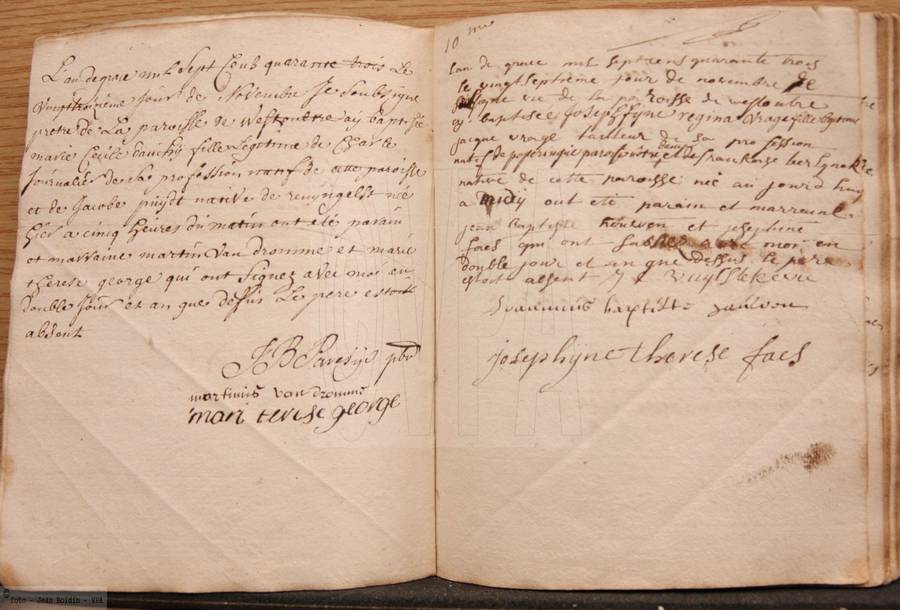 L'an de grace mil sept Cens quarante trois Le
vingttroizième jour de Novembre Je soubsigné
pretre de La paroisse de Westoutre ay baptisé
marie Cécile dauchy fille Légitime de Charle
Journalier de sa profession natif de cette paroisse
et de Jacobe native de renyngelst née
hier a cinq heures du matin ont été parain
et marraine martin Van dromme et marie
thérèse george qui ont signez avec moi en
double jour et an que dessus Le pere estoit
absent
J B Paresijs pbr
martinus van dromme
mari terese george
10 me
Lan de grace mil septcens quarante trois
le vingt septième jour de novembre Je
de la paroisse de westoutre
ay baptisée Josephyne regina Vrage fille légitime
jacque vrage tailleur de sa profession
natif de poperingue paroisse et de francoise
native de cette paroisse née au jourd huy
a midy ont été parain et marraine
jean baptiste et josephine
faes qui ont avec moi en
double jour et an que dessus le pere
estoit absent
Joannnis baptiste
josephijne therese faes
foto - Jean Boidin - VPA